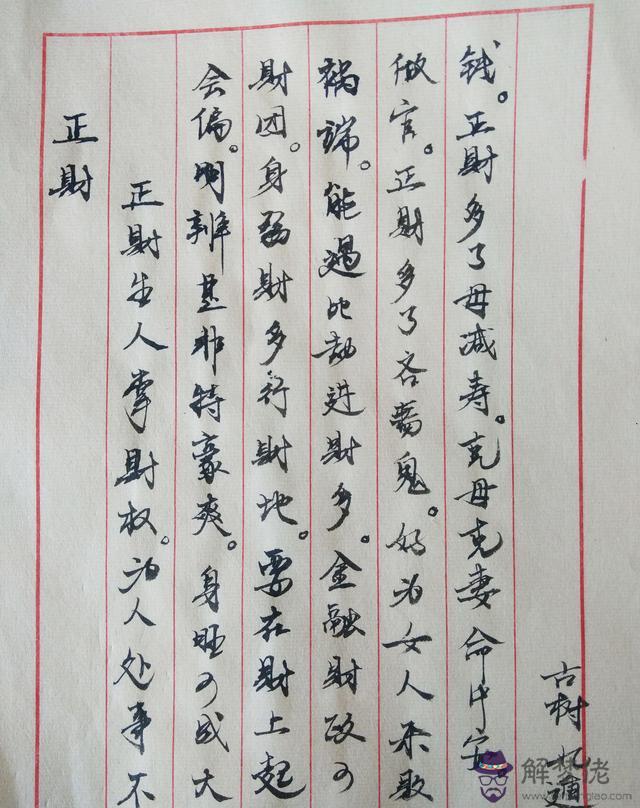 正財
正財生人掌財权。为人处事不
会偏。明辨是非特豪爽。身旺可成大
財团。身弱財多行財地。要在財上起
祸端。能遇比劫进財多。金融財政可
做官。正財多了吝啬鬼。好为女人不敢
钱。正財多了母减寿。克母克妻命中定
古树
解梦佬